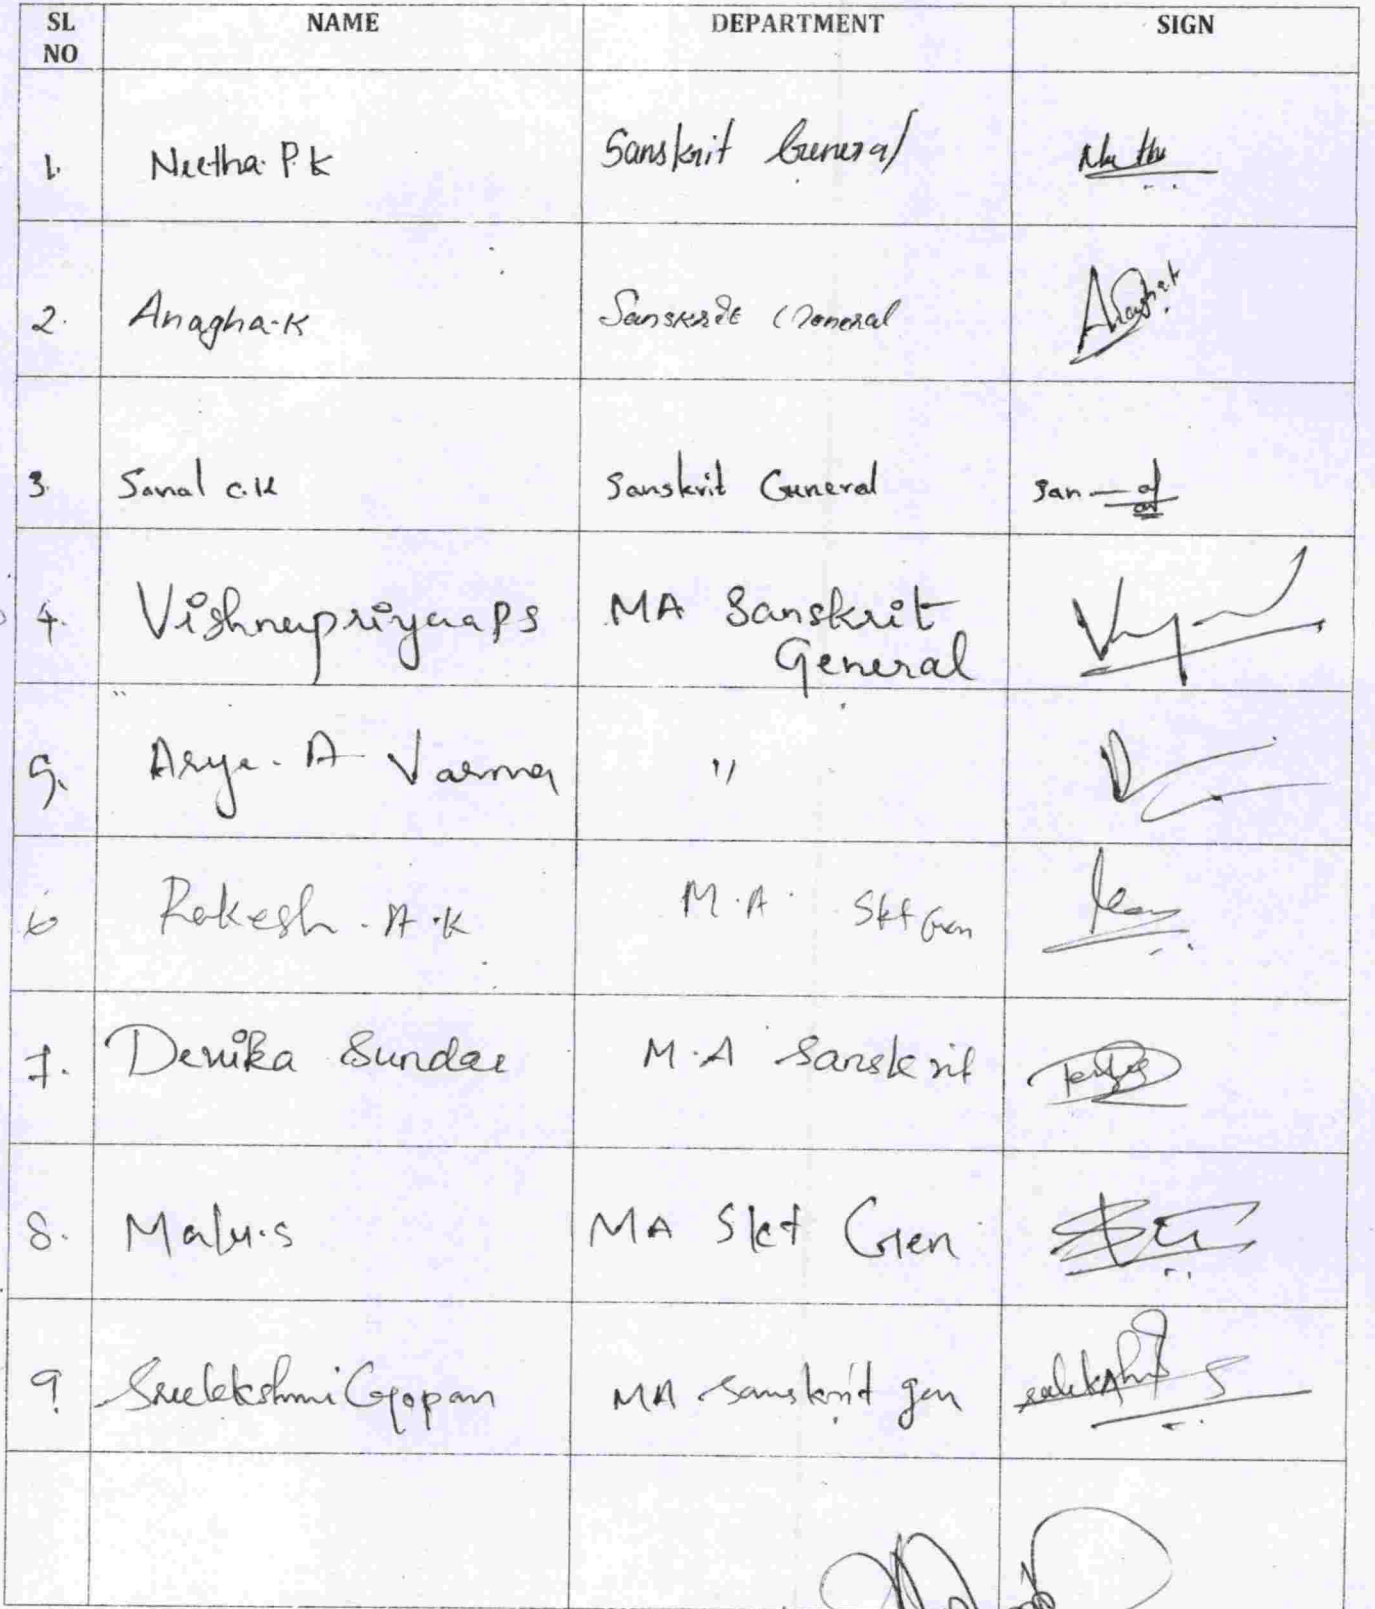 SL NO NAME DEPARTMENT SIGN
1. Neetha P.K Sanskrit General
2. Anagha.K Sanskrit General Anagha.K
3. Sanal C.K Sanskrit General San
4. Vishnupriyaa PS MA Sanskrit
General
5. Arya. A Varma "
6 Rakesh. A.K M.A. Skt Gen
7. Devika Sundar M.A Sanskrit
8. Malu.s MA Skt Gen
9. Sreelekshmi Gopan MA Sanskrit gen